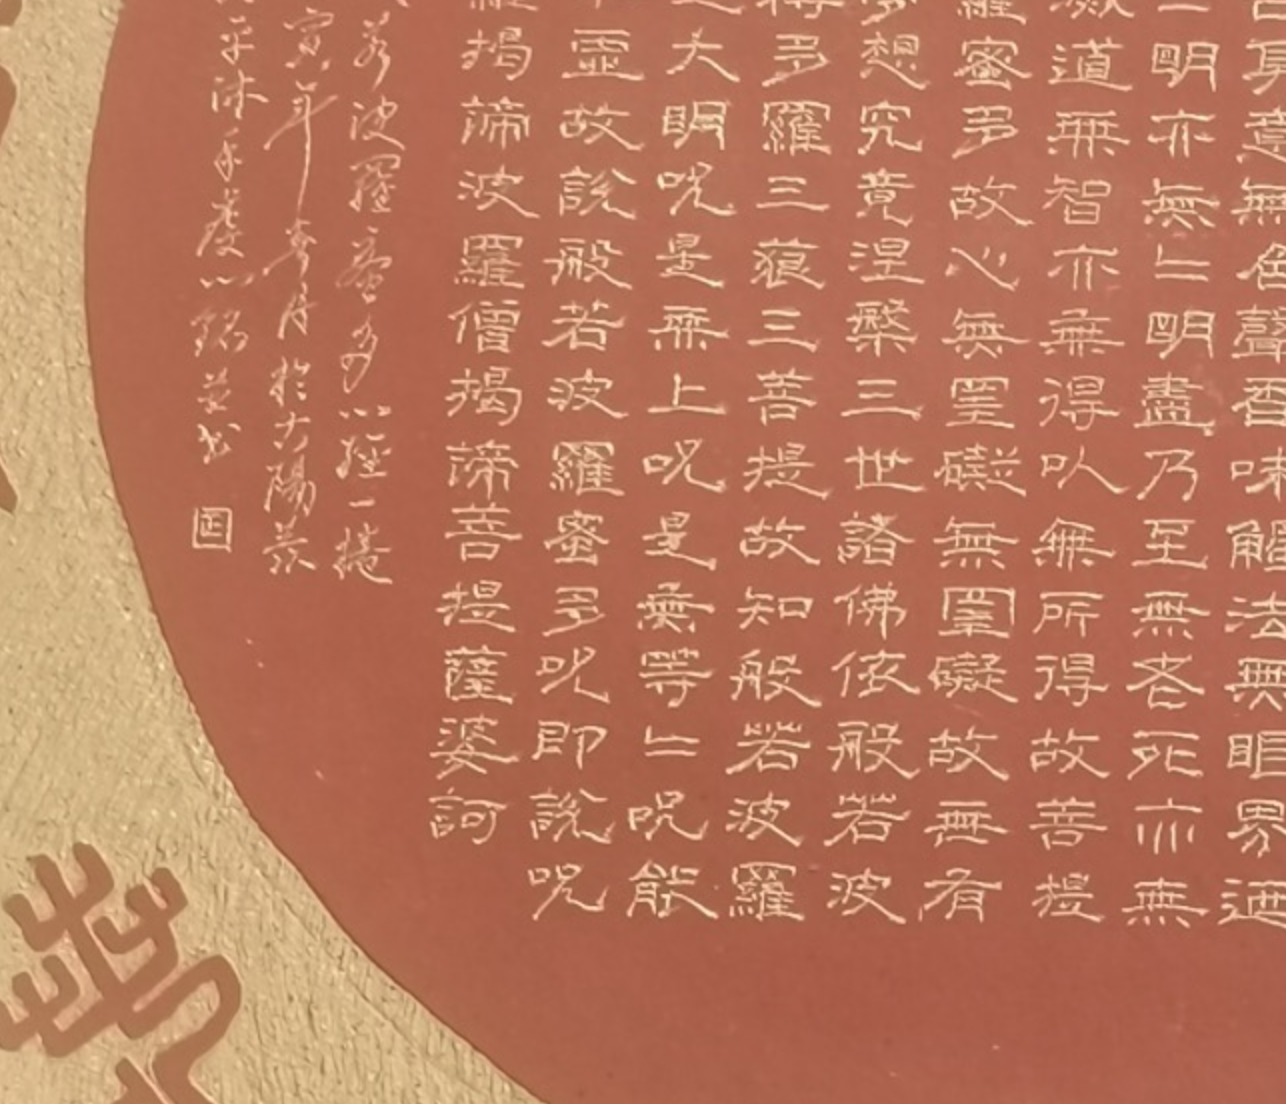 舌身意無色聲香味觸法無眼界迺
〻明亦無〻明盡乃至無老死亦無
滅道無智亦無得以無所得故菩提
羅蜜多故心無罣礙無罣礙故無有
夢想究竟涅槃三世諸佛依般若波
得多羅三藐三菩提故知般若波羅
是大明呪是無上呪是無等〻呪能
不虛故說般若波羅蜜多呪即說呪
羅揭諦波羅僧揭諦菩提薩婆訶
若波羅蜜多心經一捲
寅年冬月於古陽
平沐手虔心銘並書